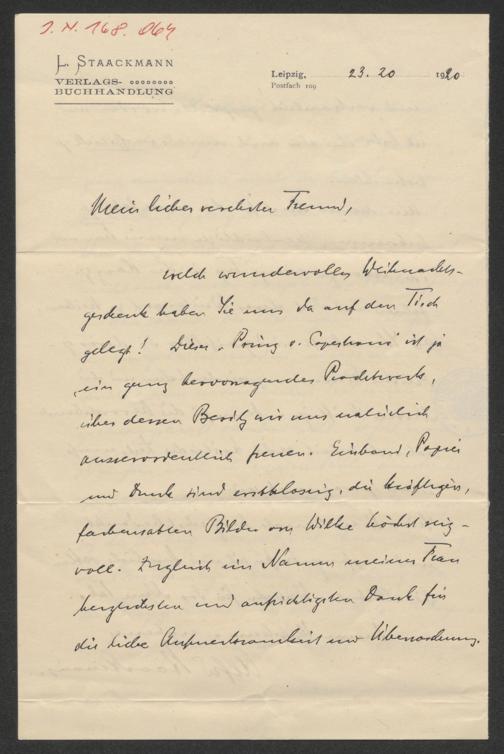 J. N. 168.064
L. STAACKMANN
VERLAGS-
BUCHHANDLUNG
Leipzig, 23. 20 1920
Postfach 109
Mein lieber verehrter Freund,
welch wundervolles Weihnachts-
geschenk haben Sie uns da auf den Tisch
gelegt! Dieser „Prinz v. Capestrano" ist ja
ein ganz hervorragendes Prachtwerk,
über dessen Besitz wir uns natürlich
ausserordentlich freuen. Einband, Papier
und Druck sind erstklassig, die kräftigen,
farbensatten Bilder von Wilke höchst reiz-
voll. Zugleich im Namen meiner Frau
herzlichsten und aufrichtigsten Dank für
die liebe Aufmerksamkeit und Übersendung.